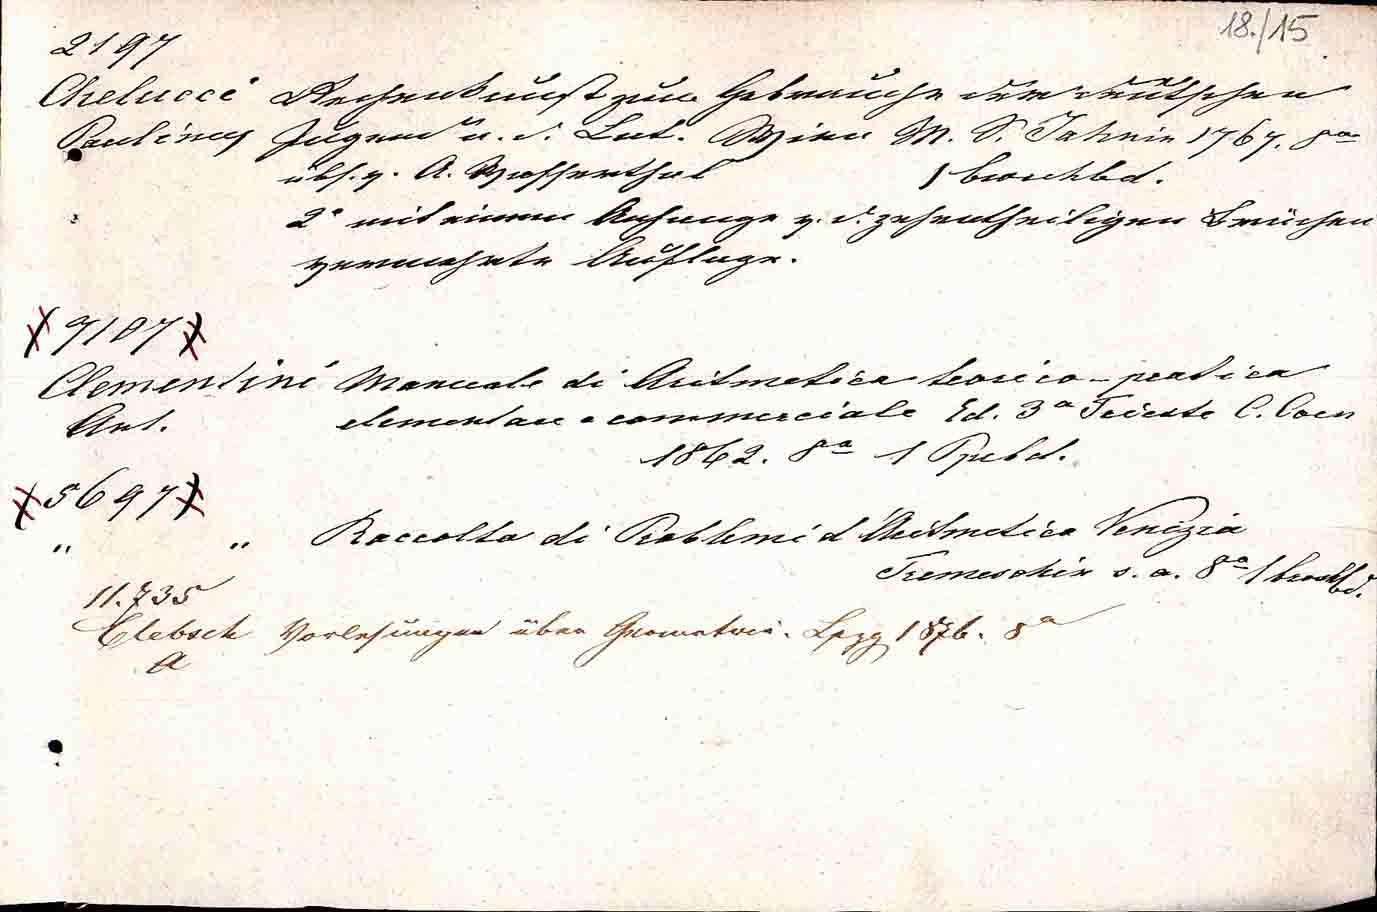 18./15
2197
Chelucci Rechenkunst zum Gebrauche der deutschen
Paulinus Jugend a. d. Lat. Wien M. S. 1767. 8°
übs. v. A. Wasserthal 1 broschbd.
2° mit einem Anhange v. d. zehentheiligen Brüchen
vermehrte Auflage.
(7107)
Clementini Manuale di Aritmetica teorico-pratica
Ant. elementare e commerciale Ed. 3a Trieste C. Coen
1862. 8a 1 Ppbd.
(5697)
" " Raccolta di Problemi d'Aritmetica Venezia
s. a. 8a 1 broschbd.
11.735
Clebsch Vorlesungen über Geometrie. Lpzg 1876. 8a
A